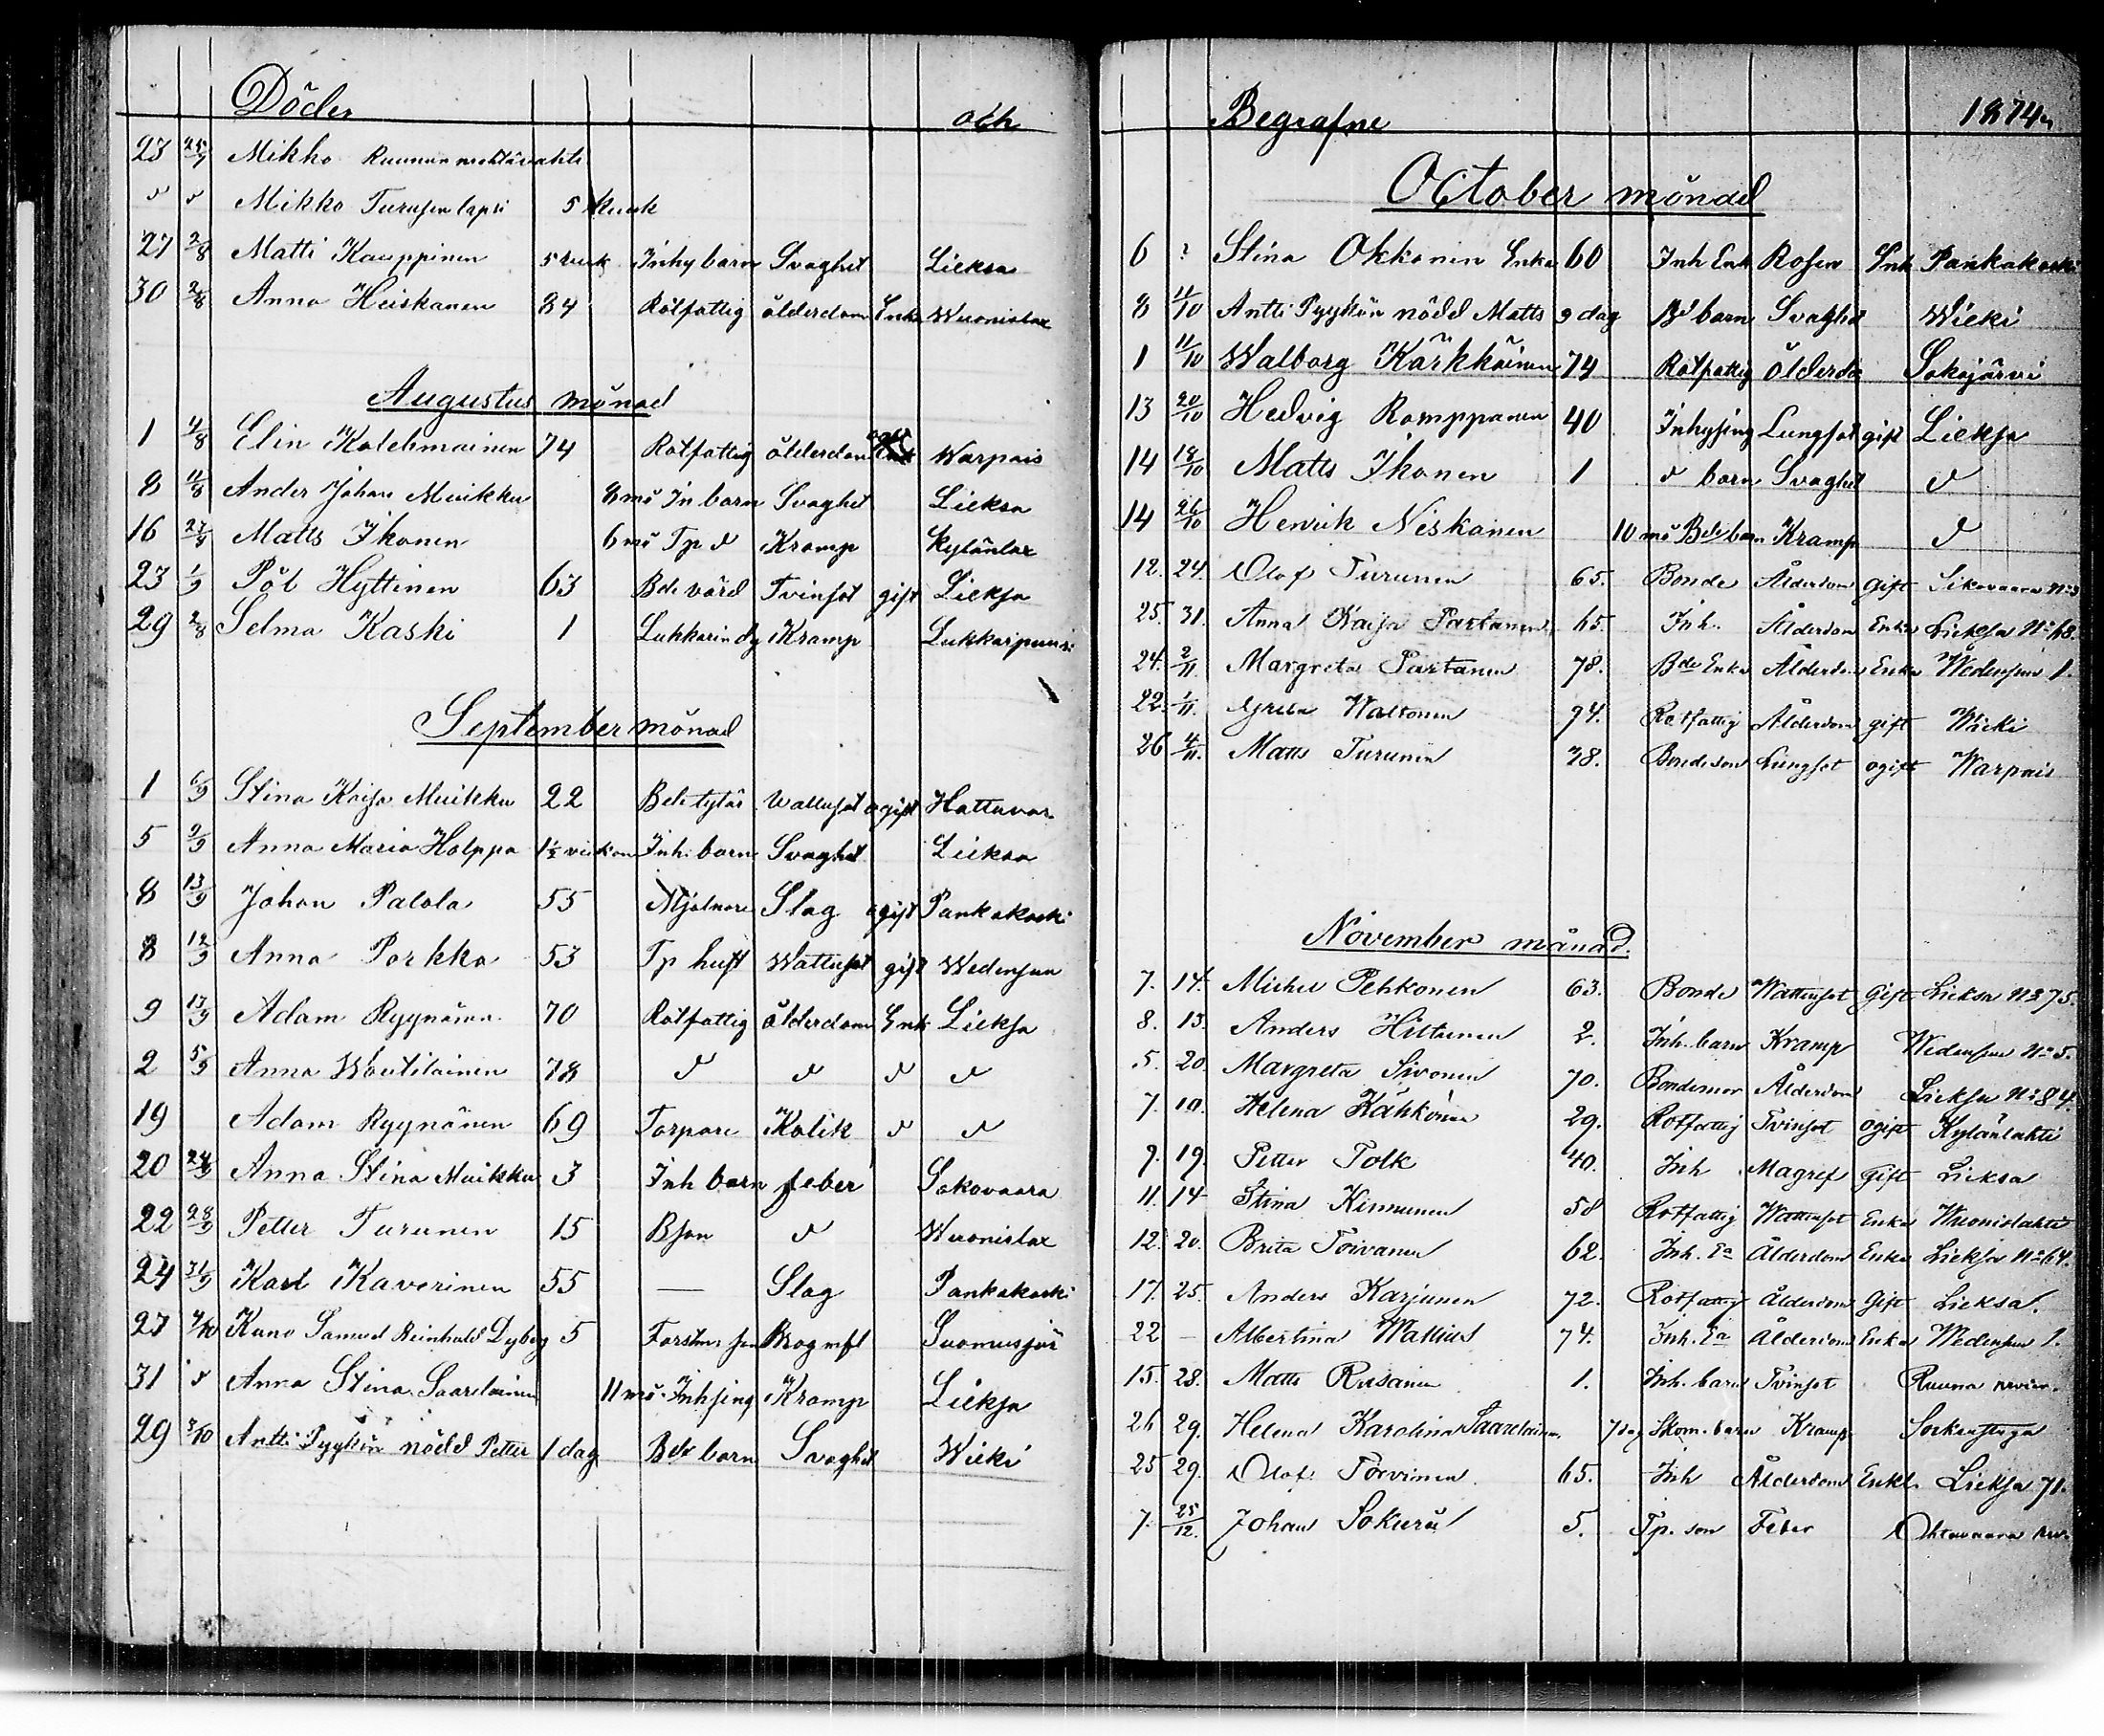 Döder och
23 25/7 Mikko Ruunun mehtävahti
d d Mikko Turusen lapsi 5 kuuk
27 2/8 Matti Kauppinen 5 kuuk Inhy barn Svaghet Lieksa
30 2/8 Anna Heiskanen 84 Rotfattig ålderdom Enka Wuonislax
Augustus månad
1 4/8 Elin Kolehmainen 74 Rotfattig ålderdom ogift Warpais
8 11/8 Ander Johan Muikku 8 mö In barn Svaghet Lieksa
16 27/8 Matts Ikonen 6 mö Tp d Kramp Kylänlax
23 1/9 Pål Hyttinen 63 Bde värd Tvinsot gift Lieksa
29 2/8 Selma Kaski 1 Lukkarin dg Kramp Lukkarpuus
September månad
1 6/9 Stina Kaisa Muikku 22 Bde tytär Wattusot ogift Hattuvar
5 9/9 Anna Maria Holppa 1½ veckan Inh. barn Svaghet Lieksa
8 13/9 Johan Palola 55 Mjölnare Slag ogift Pankakoski
8 12/9 Anna Porkka 53 Tp hust Wattusot gift Wedensuu
9 13/9 Adam Ryynänen 70 Rotfattig ålderdom Enk Lieksa
2 5/9 Anna Woutilainen 78 d d d d
19 Adam Ryynänen 69 Torpare Kolik d d
20 24/9 Anna Stina Muikku 3 Inh barn feber Sokovaara
22 28/9 Petter Turunen 15 Bson d Wuonislax
24 31/9 Karl Kaverinen 55 — Slag Pankakoski
27 4/10 Kuno Samuel Reinhold Dyberg 5 Forstm. son Magnfl Suomusjär
31 d Anna Stina Saarelainen 11 mö. Inhsing Kramp Lieksa
29 3/10 Antti Pyykön nödd Petter 1 dag Bde barn Svaghet Wieki
Begrafne 1874
October månad
6 ? Stina Okkonen Enka 60 Inh Enk Rosen Enk Pankakoski
8 11/10 Antti Pyykön nödd Matts 9 dag Bd barn Svaghet Wieki
1 11/10 Walborg Kärkkäinen 74 Rotfattig ålderdo Sokojärvi
13 20/10 Hedvig Romppanen 40 Inhysing Lungsot gift Lieksa
14 18/10 Matts Ikonen 1 d barn Svaghet d
14 26/10 Henrik Niskanen 10 mö Bde barn Kramp d
12. 24. Olof Turunen 65. Bonde Ålderdom gift Sikovaara No 3
25. 31. Anna Kaisa Partanen 65. Inh. Ålderdom Enka Lieksa No 68.
24. 2/11. Margreta Partanen 78. Bde Enka Ålderdom Enka Wedensuu 1.
22. 1/11. Greta Waltonen 94. Rotfattig Ålderdom gift Wieki
26 4/11. Matts Turunen 28. Bondeson Lungsot ogift Warpais
November månad.
7. 14. Michel Pehkonen 63. Bonde Wattensot Gift Lieksa No 75.
8. 15. Anders Hiltunen 2. Inh. barn Kramp Wedensuu No 5.
5. 20. Margreta Sivonen 70. Bondemor Ålderdom Lieksa No 84.
7. 10. Helena Kähkönen 29. Rotfattig Tvinsot ogift Kylänlahti
9. 19. Petter Tolk 40. Inh Magref Gift Lieksa
11. 14 Stina Kinnunen 58 Rotfattig Wattensot Enka Wuonislahti
12. 20. Brita Toivanen 62. Inh. Ea Ålderdom Enka Lieksa No 64.
17. 25. Anders Karjunen 72. Rotfattig Ålderdom Gift Lieksa.
22 — Albertina Wallius 74. Inh. Ea Ålderdom Enka Wedensuu 1.
15. 28. Matts Rusanen 1. Inh. barn Tvinsot Ruuna
26 29. Helena Karolina Saarelainen. 7 dag Skom. barn Kramp Sorkenstuga
25 29. Olof Torvinen. 65. Inh Ålderdom Enkl. Lieksa 71.
7. 25/12. Johan Sokurä 5. Tp. son Feber